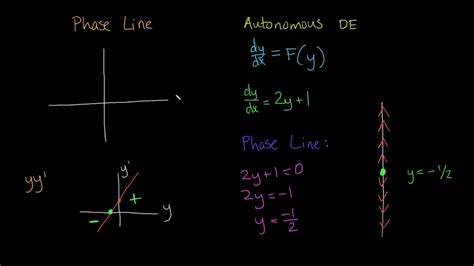 Phase Line
Autonomous DE
dy/dx = F(y)
dy/dx = 2y+1
Phase Line:
2y+1=0
2y=-1
y = -1/2
y=-1/2
yy'
y'
+
-
y